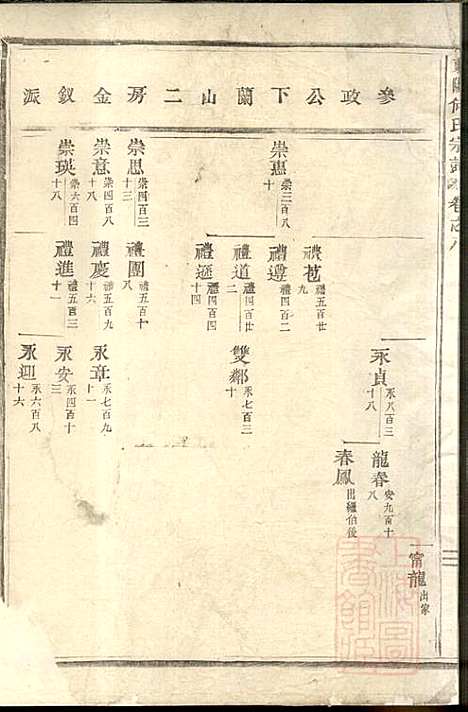 參政公下蘭山二房金釵派
崇惠 崇三百八十
崇思 崇四百三十三
崇意 崇四百八十八
崇瑛 崇六百四十八
禮苞 禮五百廿九
禮遵 禮四百二
禮道 禮四百廿二
禮遜 禮四百廿十四
禮圍 禮五百十八
禮慶 禮五百九十六
禮進 禮五百三十一
永貞 永八百三十八
雙鄰 永七百三十
永章 永七百九十一
永安 永四百十三
永迎 永六百八十六
龍春 安九百十八
春鳳 出繼伯後
甯龍 出家
何氏宗譜